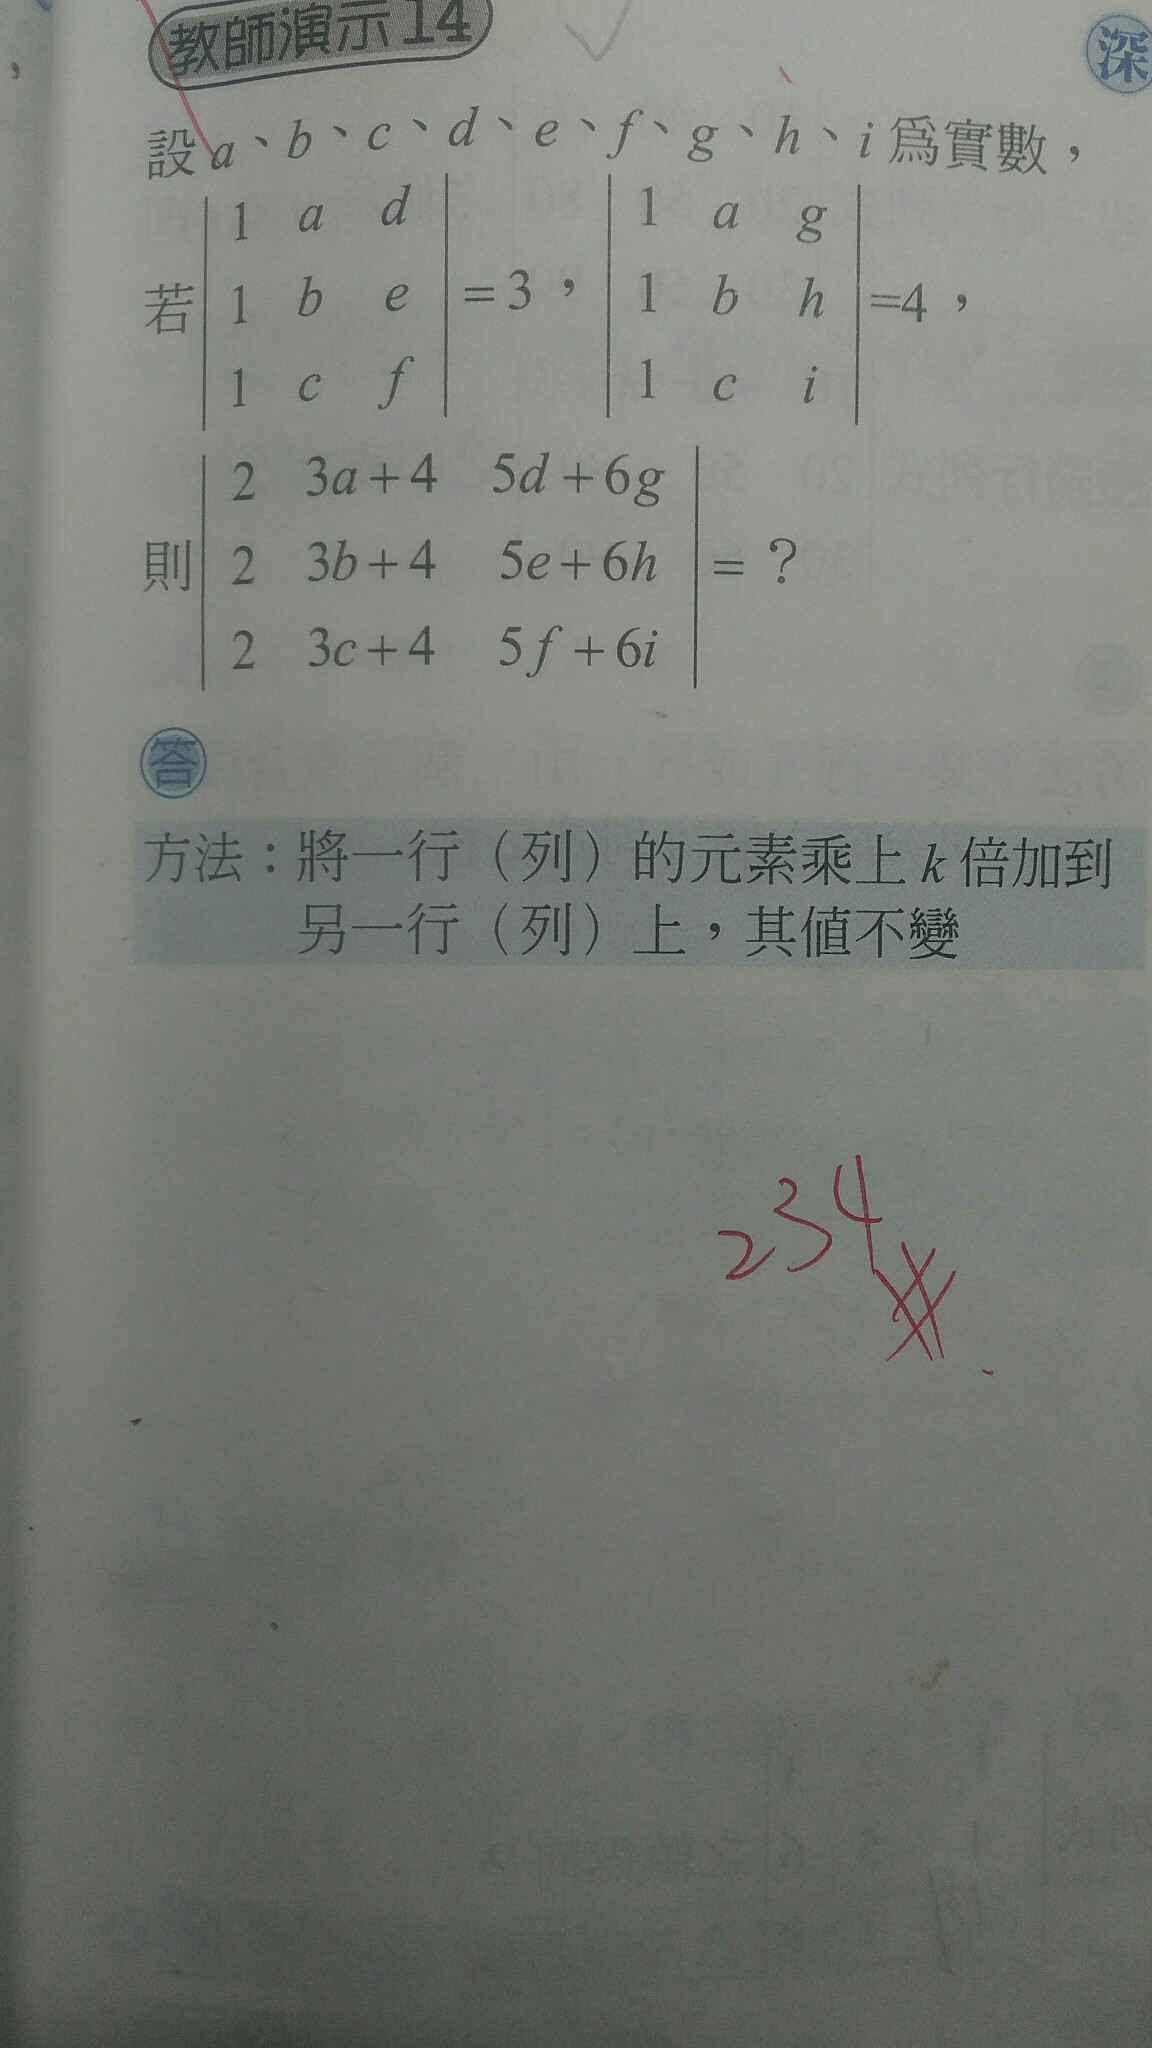 教師演示14
深
設a、b、c、d、e、f、g、h、i為實數，
若|1 a d|=3，|1 a g|=4，
1 b e 1 b h
1 c f 1 c i
則|2 3a+4 5d+6g|=？
2 3b+4 5e+6h
2 3c+4 5f+6i
答
方法：將一行（列）的元素乘上k倍加到
另一行（列）上，其值不變
234